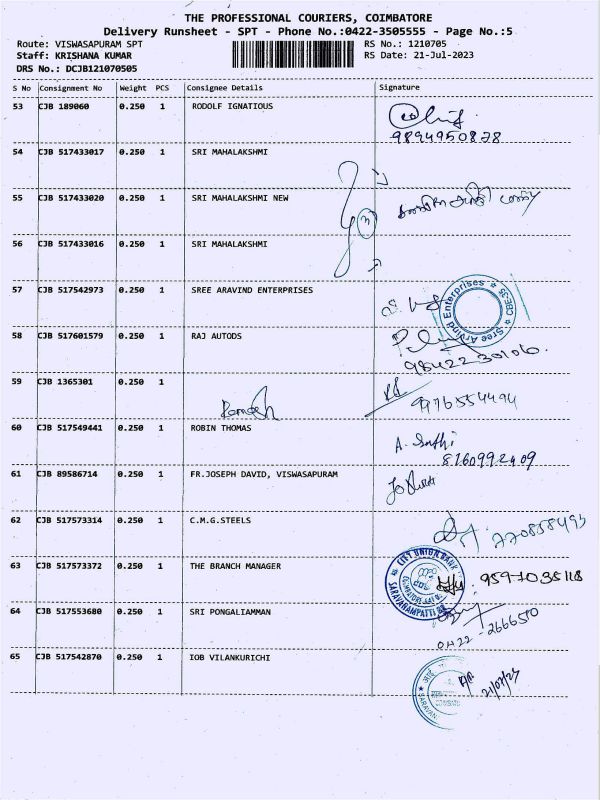 THE PROFESSIONAL COURIERS, COIMBATORE
Delivery Runsheet - SPT - Phone No.:0422-3505555 - Page No.:5
Route: VISWASAPURAM SPT RS No.: 1210705
Staff: KRISHANA KUMAR RS Date: 21-Jul-2023
DRS No.: DCJB121070505
S No Consignment No Weight PCS Consignee Details Signature
53 CJB 189060 0.250 1 RODOLF IGNATIOUS
9894950878
54 CJB 517433017 0.250 1 SRI MAHALAKSHMI
55 CJB 517433020 0.250 1 SRI MAHALAKSHMI NEW
56 CJB 517433016 0.250 1 SRI MAHALAKSHMI
57 CJB 517542973 0.250 1 SREE ARAVIND ENTERPRISES
Sree Arvind Enterprises CBE-35
58 CJB 517601579 0.250 1 RAJ AUTODS
9842230106
59 CJB 1365301 0.250 1
Ramesh 9976554494
60 CJB 517549441 0.250 1 ROBIN THOMAS
A. Sathi
8760992409
61 CJB 89586714 0.250 1 FR.JOSEPH DAVID, VISWASAPURAM
62 CJB 517573314 0.250 1 C.M.G.STEELS
7708584495
63 CJB 517573372 0.250 1 THE BRANCH MANAGER
CITY UNION BANK SARAVANAMPATTI BR
9597035118
64 CJB 517553680 0.250 1 SRI PONGALIAMMAN
0422-2666510
65 CJB 517542870 0.250 1 IOB VILANKURICHI
SARAVAN
21/07/23